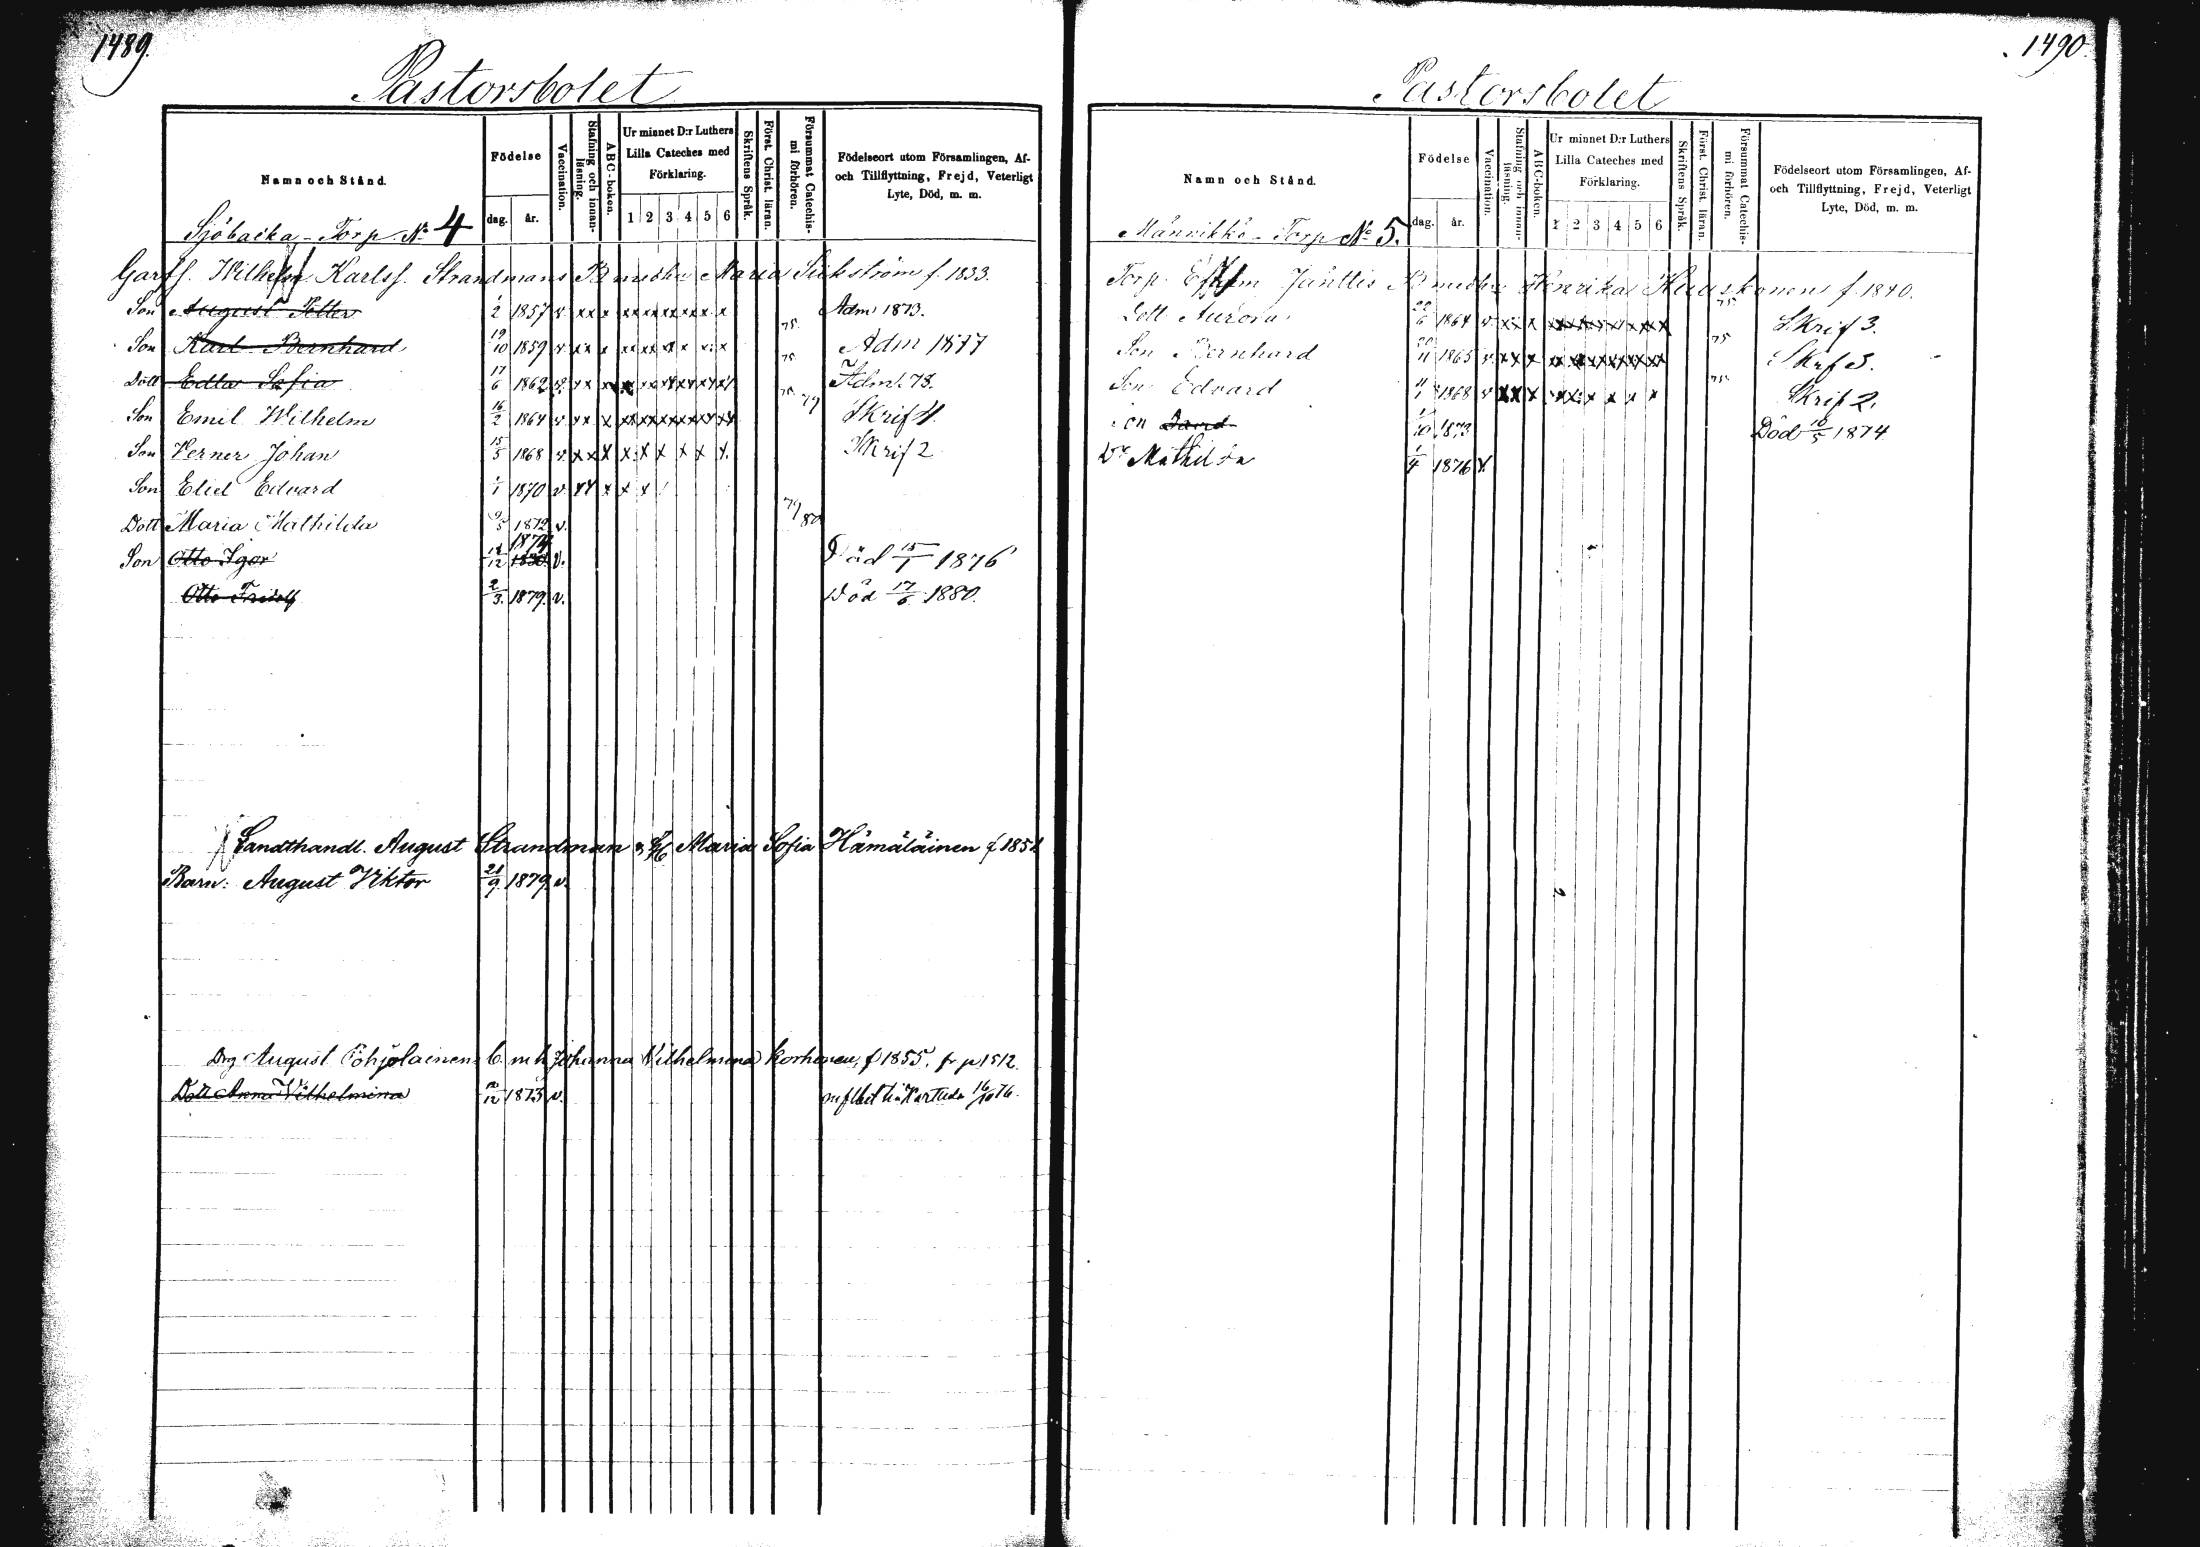 1489.
Pastorsbolet
Namn och Stånd.
Födelse
dag. år.
Vaccination.
Stafning och innanläsning.
ABC-boken.
Ur minnet D:r Luthers Lilla Cateches med Förklaring.
1 2 3 4 5 6
Skriftens Språk.
Först. Christ. läran.
Försummat Catechismi förhören.
Födelseort utom Församlingen, Af- och Tillflyttning, Frejd, Veterligt Lyte, Död, m. m.
Sjöbacka - Torp No 4
Wilhelm Karlss. Strandmans Maria f. 1833.
Son August Petter 1/2 1857 v xx x xxxxxxxxx x Adm 1873.
Son Karl Bernhard 19/10 1859 v xx x 75. Adm 1877
Dott Edla Sofia 17/6 1862 v. xx x 75. Adm. 78.
Son Emil Wilhelm 16/2 1864 v xx x 75. 79 Skrif 4.
Son Verner Johan 15/5 1868 v. xx x x x x x x x. Skrif 2
Son Eliel Edvard 1/1 1870 v xx x x x
Dott Maria Mathilda 9/5 1872 v. 79/80
Son Otto Igor 12 1874 v. Död 15/1 1876
Otto Fridolf 2/3. 1879. v. Död 17/6 1880.
Landthandl. August Strandman & H Maria Sofia Hämäläinen f 185
Barn: August Viktor 21/9. 1879 v.
Drg August Pohjolainens b. m h Johanna Vilhelmina Korhonen, f 1855, fr p 1512.
Dott Anna Vilhelmina 12 1873 v. Karttula 16/10 76.
1490
Pastorsbolet
Namn och Stånd.
Födelse
dag. år.
Vaccination.
Stafning och innanläsning.
ABC-boken.
Ur minnet D:r Luthers Lilla Cateches med Förklaring.
1 2 3 4 5 6
Skriftens Språk.
Först. Christ. läran.
Försummat Catechismi förhören.
Födelseort utom Församlingen, Af- och Tillflyttning, Frejd, Veterligt Lyte, Död, m. m.
Männikkö - Torp No 5.
Torp. Jänttis Henrika f. 1840.
Dott Aurora 22/6 1864 v xx x 75 Skrif 3.
Son Bernhard 11 1865 v. xx x 75 Skrf 3.
Son Edvard 11/1 1868 v xx x 75 Skrif 2.
Son David 10 1873 Död 16/5 1874
Mathilda 1/4 1876 v.